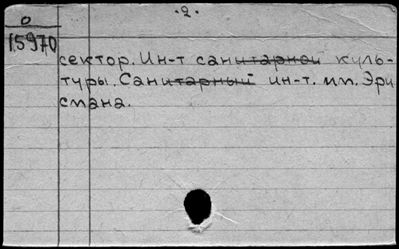 .2.
0
15970
сектор. Ин-т санитарной куль-
туры. Санитарный ин-т. им. Эри
смана.